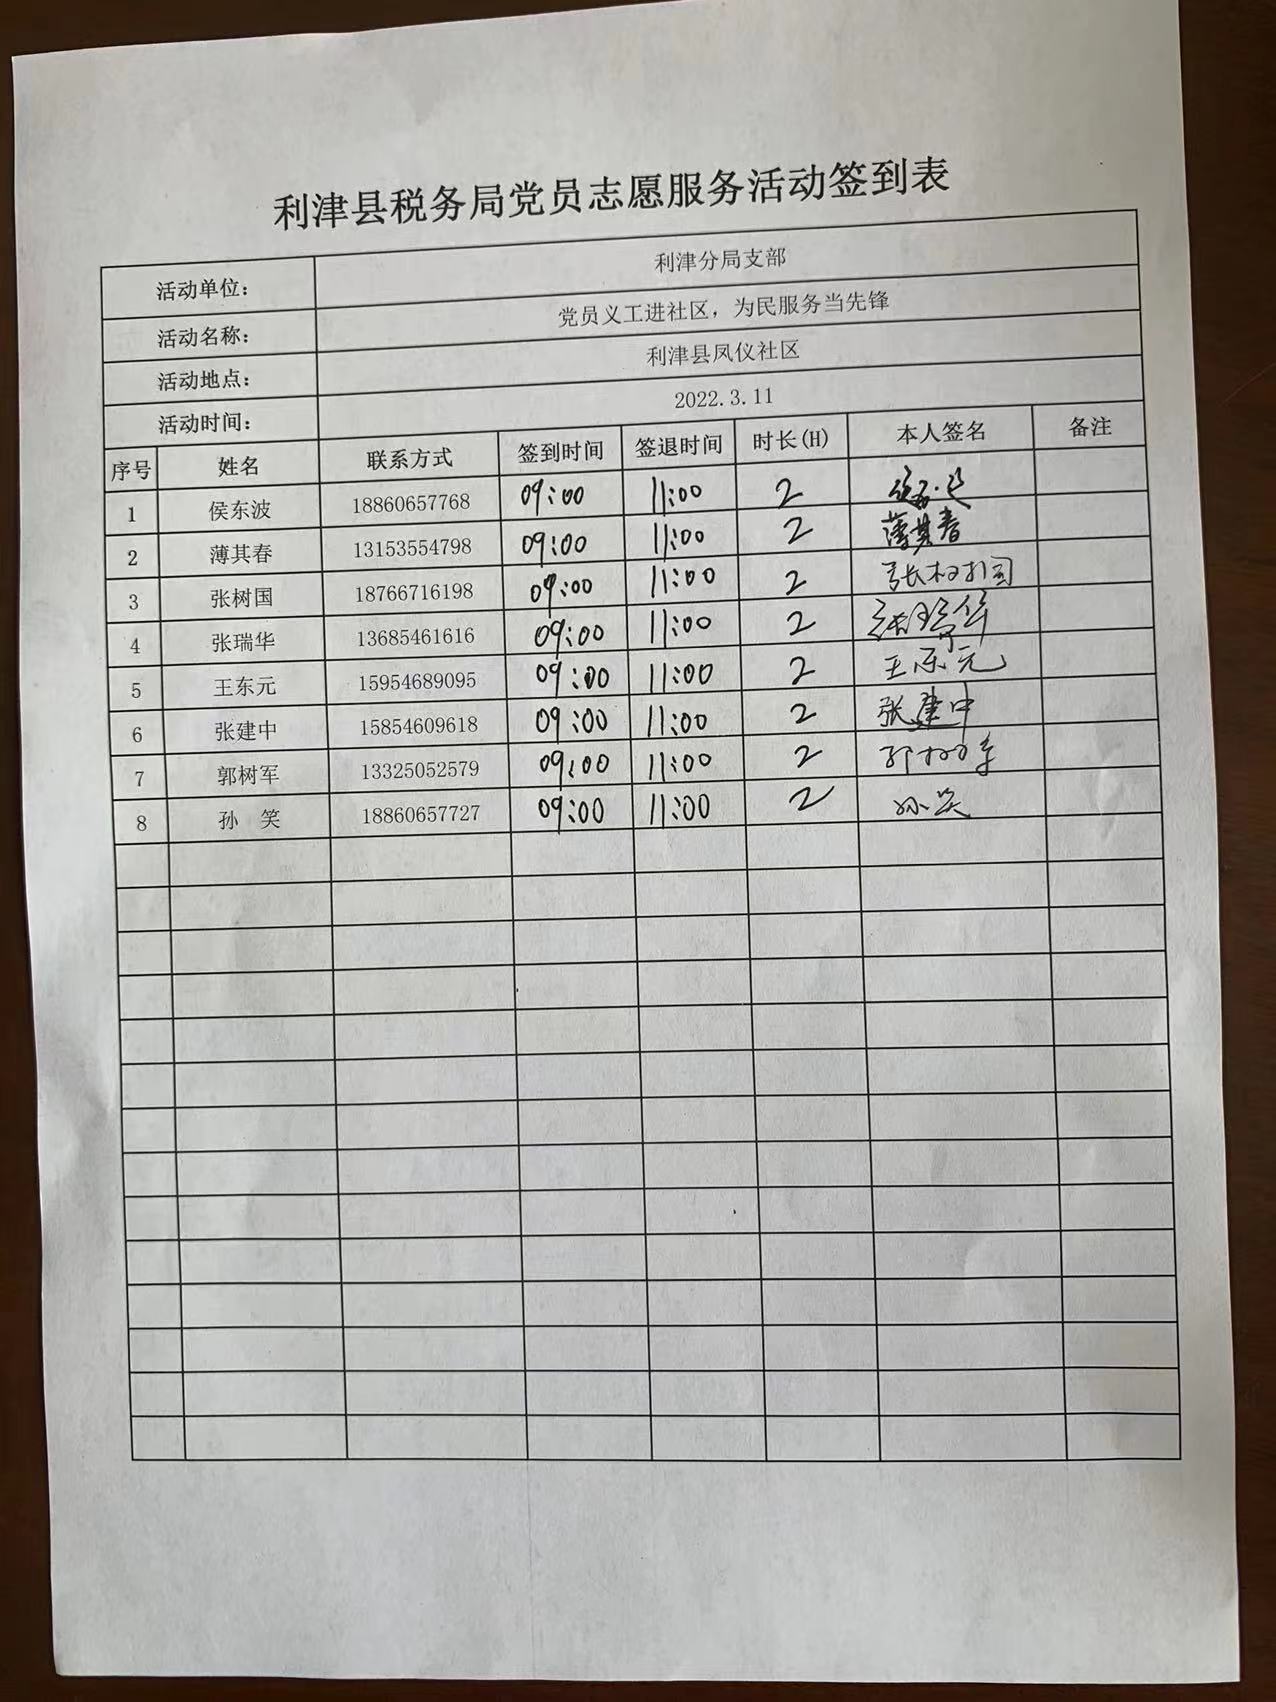 利津县税务局党员志愿服务活动签到表
活动单位： 利津分局支部
活动名称： 党员义工进社区，为民服务当先锋
活动地点： 利津县凤仪社区
活动时间： 2022.3.11
序号 姓名 联系方式 签到时间 签退时间 时长(H) 本人签名 备注
1 侯东波 18860657768 09:00 11:00 2
2 薄其春 13153554798 09:00 11:00 2 薄其春
3 张树国 18766716198 09:00 11:00 2 张树国
4 张瑞华 13685461616 09:00 11:00 2 张瑞华
5 王东元 15954689095 09:00 11:00 2 王东元
6 张建中 15854609618 09:00 11:00 2 张建中
7 郭树军 13325052579 09:00 11:00 2 郭树军
8 孙 笑 18860657727 09:00 11:00 2 孙笑